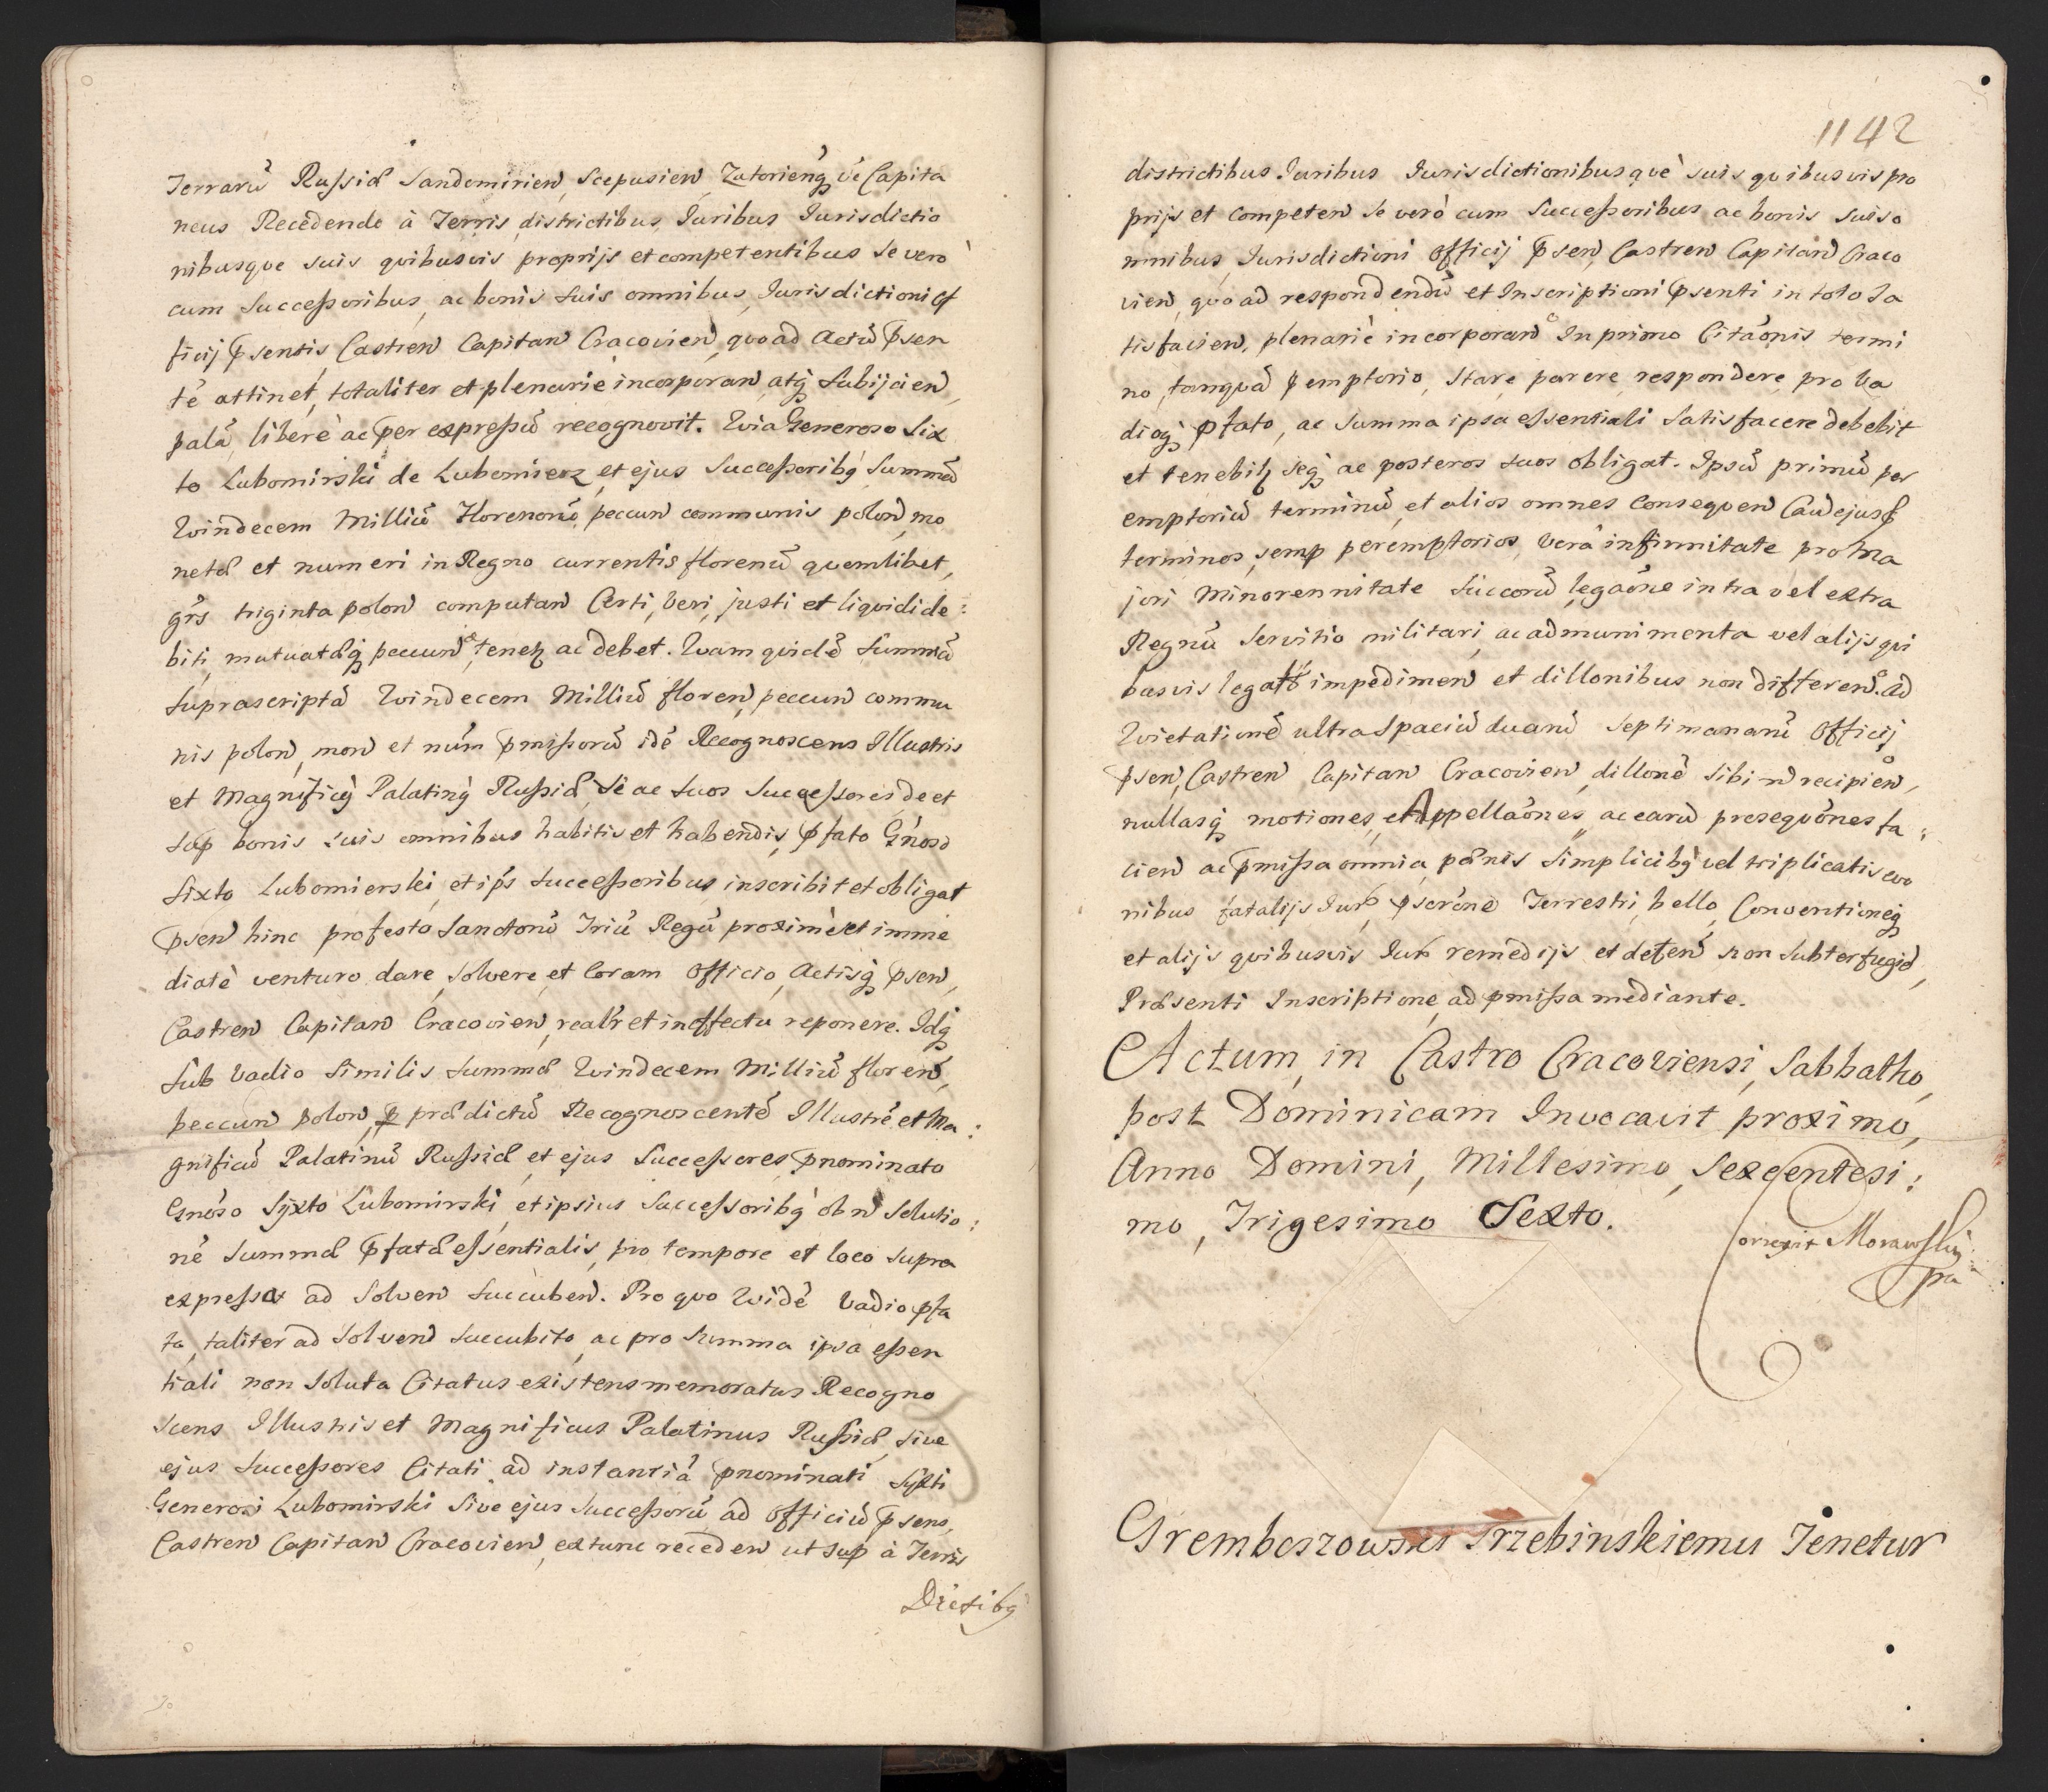 Terrarū Russiæ Sandomirien, Scepusien Zatorienq́ȝ vè Capita
neus Recedendo à Terris, districtibus Juribus Jurisdictio
nibusque suis quibusvis proprijs et competentibus Se verò
cum Successoribus, ac bonis Suis omnibus, Jurisdictioni of
ficij p̄sentis, Castren Capitan Cracovien, quoad Actū p̄sen
tē attinet, totaliter et plenarie incorporan atq́ȝ Subijcien,
palā, liberè ac per expressū recognovit. Quia Generoso Six
to Lubomirski de Lubomierz et ejus Successoribq́ Summā
Quindecem Milliū Florenorū peccun communis polon, mo
netæ et numeri in Regno currentis florenū quemlibet,
grs̄ triginta polon computan Certi, Veri, justi et liquidi de:
biti, mutuatæq́ȝ peccuniæ, tenetȝ ac debet. Quam quidē Summā
Suprascriptā Quindecem Milliū floren, peccun commu
nis polon, mon et nūm p̄missorū idē Recognoscens Illustris
et Magnificq́ Palatinq́ Russiæ, Se ac Suos Successores de et
Sup bonis Suis omnibus habitis et habendis, p̄fato Gn̄oso
Sixto Lubomierski, et ips̄ Successoribus inscribit et obligat
p̄sen hinc pro festo Sanctorū Triū Regū proximè et imme
diatè venturo dare, Solvere, et Coram Officio, Actisq́ȝ p̄sen,
Castren Capitan Cracovien, realr̄ et in effectu reponere. Idq́ȝ
Sub Vadio Similis Summæ Quindecem Milliū floren,
peccun polon, p prædictū Recognoscentē Illustrē et Ma:
gnificū Palatinū Russiæ et ejus Successores, p̄nominato
Gnōso Syxto Lubomirski, et ipsius Successoribq́ ob n̄ Solutio:
nē Summæ p̄fatæ essentialis, pro tempore et loco Supra
expressa ad Solven Succuben. Pro quo Quidē Vadio p̄fa
to, taliter ad Solvend Succubito, ac pro Summa ipsa essen
tiali non Soluta Citatus existens memoratus Recogno
scens Illustris et Magnificus Palatinus Russiæ, Sive
ejus Successores Citati, ad instantiā p̄nominati Syxti
Generosi Lubomirski Sive ejus Successorū ad Officiū p̄sens,
Castren Capitan Cracovien, extunc receden ut Sup à Terris
Dictibq́
1142
districtibus Juribus Jurisdictionibusquè suis quibusvis pro
prijs et competen Se verò cum Successoribus ac bonis Suis o
mnibus, Jurisdictioni Officij p̄sen, Castren Capitan Craco
vien, quoad respondendū et Inscriptioni p̄senti in toto Sa
tisfacien, plenariè incorporan In primo Citāonis termi
no, tanquā p̄emptorio, Stare, parere, respondere, pro Va
dioq́ȝ p̄fato, ac Summa ipsa essentiali Satisfacere debebit
et tenebitȝ Seq́ȝ ac posteros suos obligat. Ipsū primū per
emptoriū terminū et alios omnes Consequen Cau̅ ejusd
terminos, semp peremptorios, Verâ infirmitate pro Ma
jori Minorennitate Succorū, legaōne intra vel extra
Regnū Servitio militari, ac ad munimenta vel alijs qui
busvis legatō impedimen et dillonibus non differen. Ad
Quietationē ultra Spaciū duarū Septimanarū Officij
p̄sen, Castren Capitan Cracovien, dillonē Sibi n̄ recipien,
nullasq́ȝ motiones, et Appellaōnes, ac earū prosequōnes fa:
cien ac p̄missa omnia, pœnis Simplicibq́ vel triplicatis evo
nibus fatalijs Jur̄ p̄scr̄one Terrestri, bello, Conventioneq́ȝ
et alijs quibusvis Jur̄ remedijs et defen non Subterfugiē,
Præsenti Inscriptione, ad p̄missa mediante.
Actum, in Castro Cracoviensi, Sabbatho,
post Dominicam Invocavit proximo,
Anno Domini, Millesimo, Sexcentesi:
mo, Trigesimo Sexto.
Correxit Morawski
mpa
Gremboszowski Trzebinskiemu Tenetur